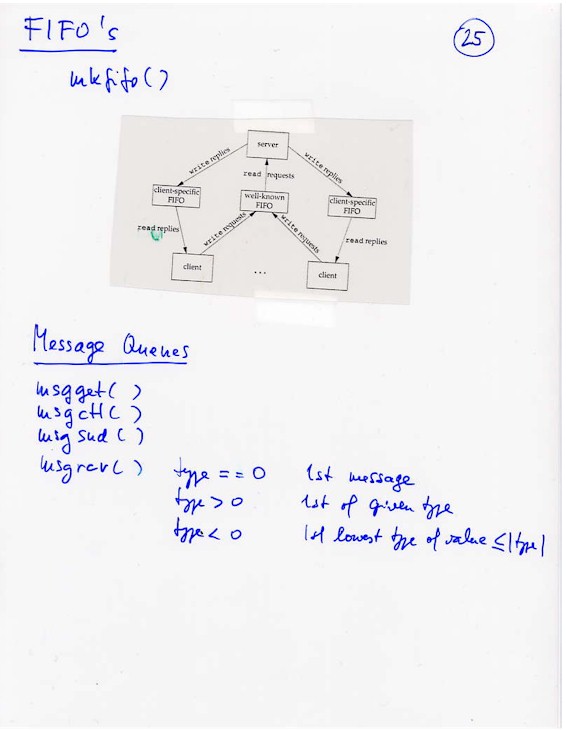 FIFO's
25
mkfifo()
server
write replies
read requests
write replies
client-specific
FIFO
well-known
FIFO
client-specific
FIFO
read replies
write requests
write requests
read replies
client
...
client
Message Queues
msgget( )
msgctl( )
msgsnd( )
msgrcv( ) type == 0 1st message
type > 0 1st of given type
type < 0 1st lowest type of value ≤ |type|